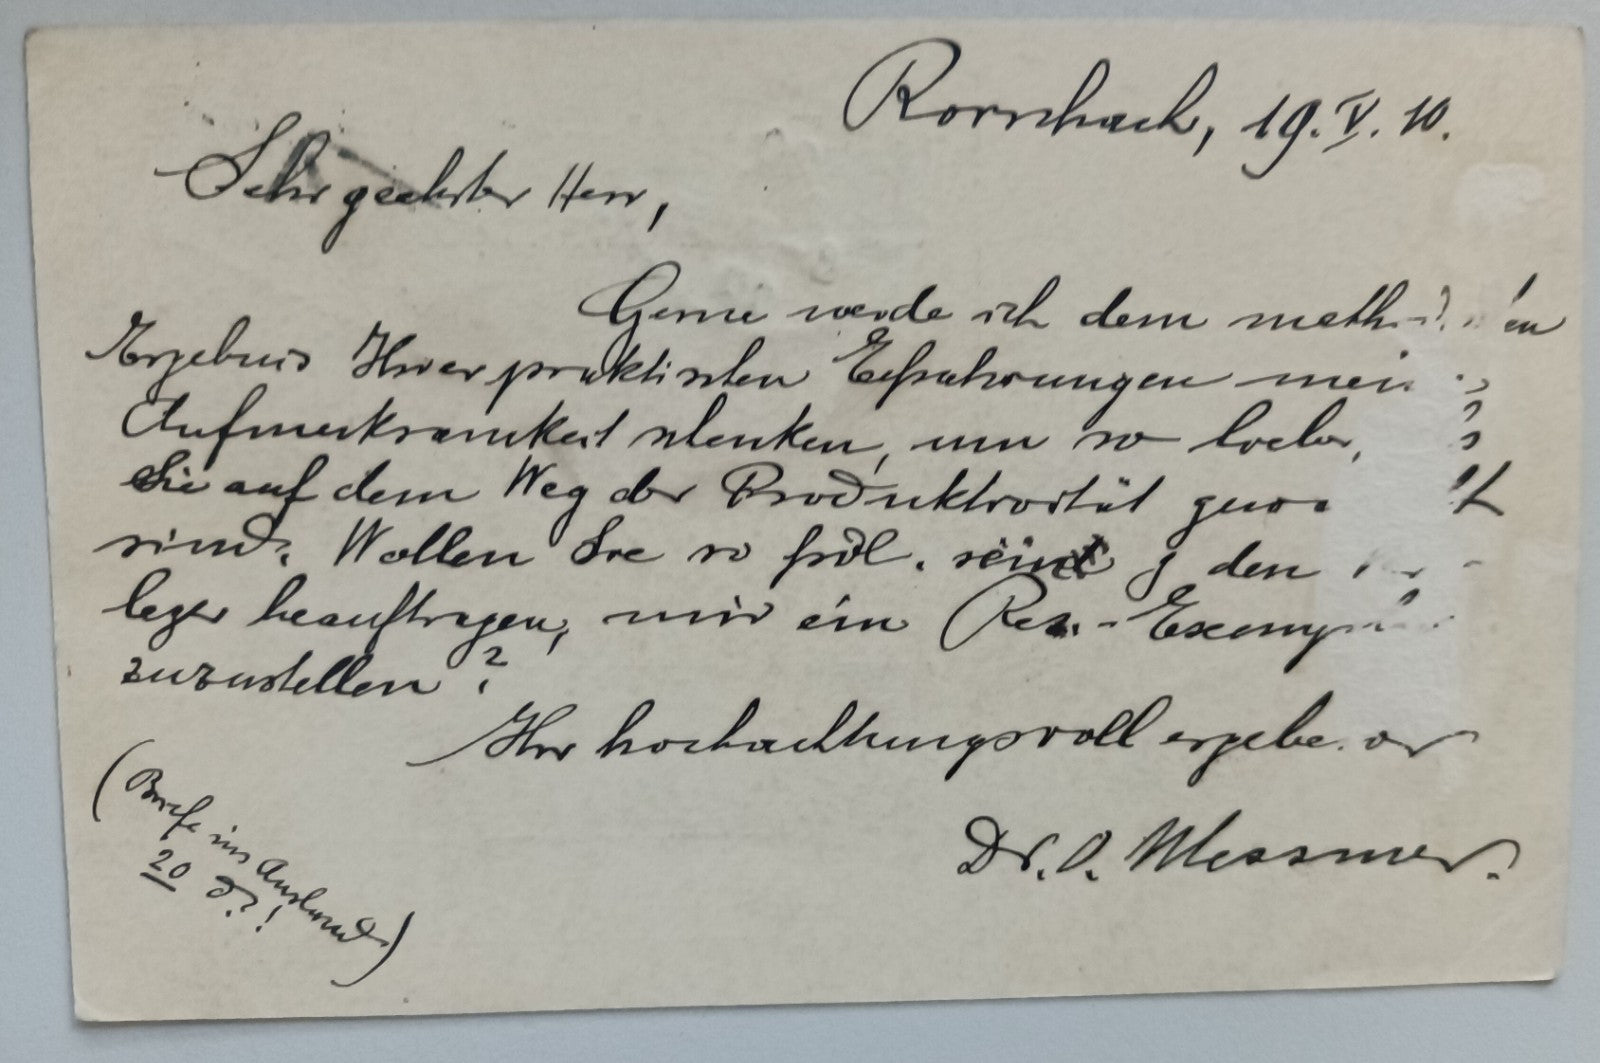 Rorschach, 19. V. 10.
Sehr geehrter Herr,
Gerne werde ich dem
Ergebnis Ihrer praktischen Erfahrungen
Aufmerksamkeit schenken, um so lieber,
Sie auf dem Weg der Produktivität
sind. Wollen Sie so frdl. sein den
leger beauftragen, mir ein Rez.-
zuzustellen?
Ihr hochachtungsvoll
Dr. O. Messmer.
(Briefe ins Ausland
20 ₰?!)